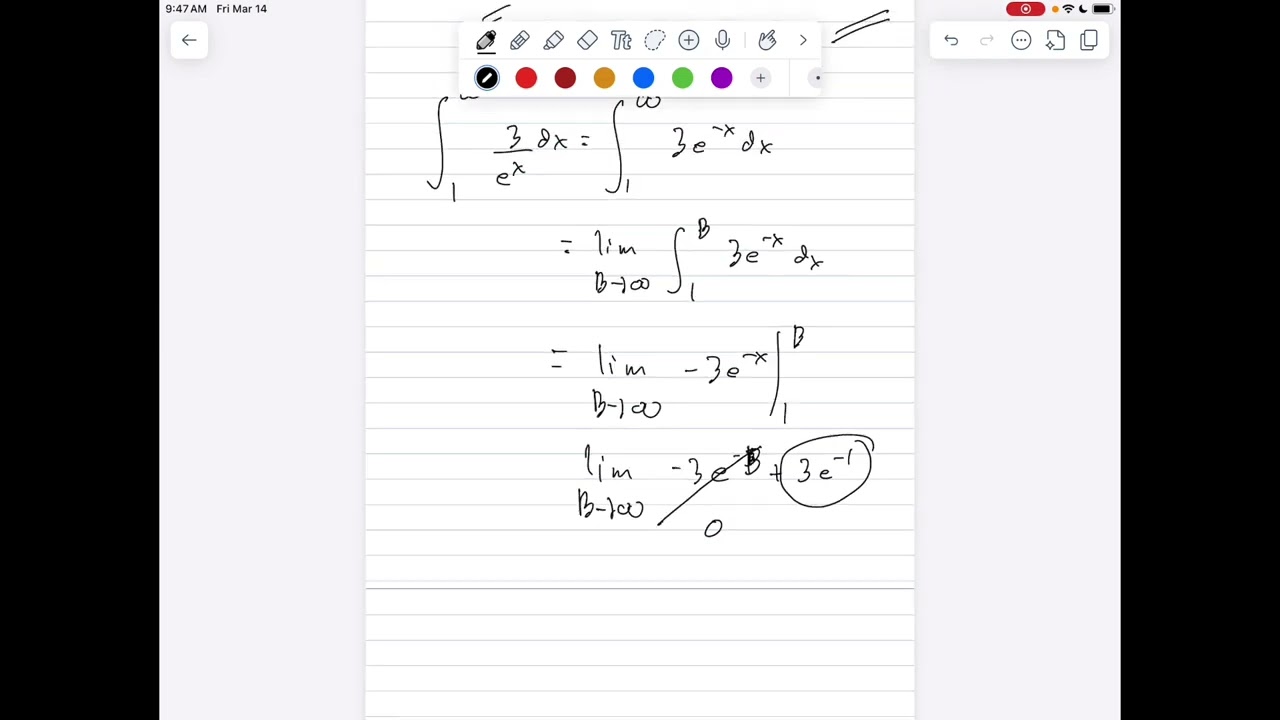 9:47 AM Fri Mar 14
Tt
∫₁^∞ 3/eˣ dx = ∫₁^∞ 3e⁻ˣ dx
= lim B→∞ ∫₁^B 3e⁻ˣ dx
= lim B→∞ -3e⁻ˣ |₁^B
lim B→∞ -3e⁻ᴮ + 3e⁻¹
0